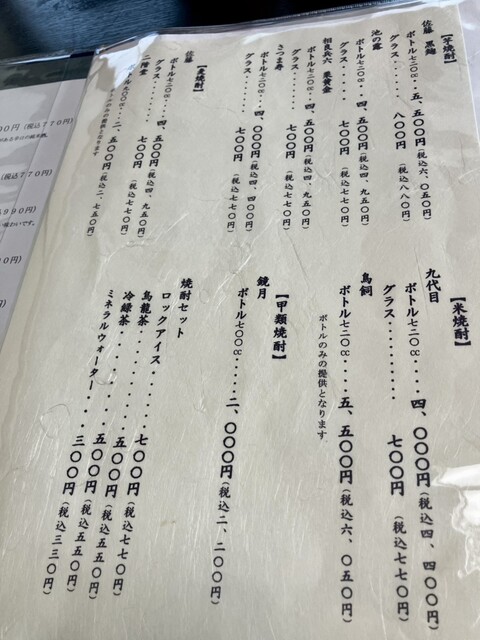 【芋焼酎】
佐藤 黒麹
ボトル七二〇cc‥‥五、五〇〇円(税込六、〇五〇円)
グラス‥‥‥‥‥八〇〇円(税込八八〇円)
池の露
ボトル七二〇cc‥‥四、五〇〇円(税込四、九五〇円)
グラス‥‥‥‥‥七〇〇円(税込七七〇円)
相良兵六 栗黄金
ボトル七二〇cc‥‥四、五〇〇円(税込四、九五〇円)
グラス‥‥‥‥‥七〇〇円(税込七七〇円)
さつま寿
ボトル七二〇cc‥‥四、〇〇〇円(税込四、四〇〇円)
グラス‥‥‥‥‥七〇〇円(税込七七〇円)
【麦焼酎】
佐藤
ボトル七二〇cc‥‥四、五〇〇円(税込四、九五〇円)
グラス‥‥‥‥‥七〇〇円(税込七七〇円)
二階堂
ボトル九〇〇cc‥‥二、五〇〇円(税込二、七五〇円)
ボトルのみの提供となります
【米焼酎】
九代目
ボトル七二〇cc‥‥四、〇〇〇円(税込四、四〇〇円)
グラス‥‥‥‥‥七〇〇円(税込七七〇円)
鳥飼
ボトル七二〇cc‥‥五、五〇〇円(税込六、〇五〇円)
ボトルのみの提供となります
【甲類焼酎】
鏡月
ボトル七〇〇cc‥‥‥二、〇〇〇円(税込二、二〇〇円)
焼酎セット
ロックアイス‥‥‥‥七〇〇円(税込七七〇円)
烏龍茶‥‥‥‥‥‥‥五〇〇円(税込五五〇円)
冷緑茶‥‥‥‥‥‥‥五〇〇円(税込五五〇円)
ミネラルウォーター‥‥三〇〇円(税込三三〇円)
〇〇円(税込七七〇円)
(税込七七〇円)
九九〇円)